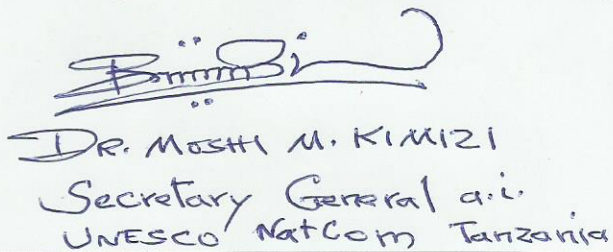 DR. MOSHI M. KIMIZI
Secretary General a.i.
UNESCO NatCom Tanzania